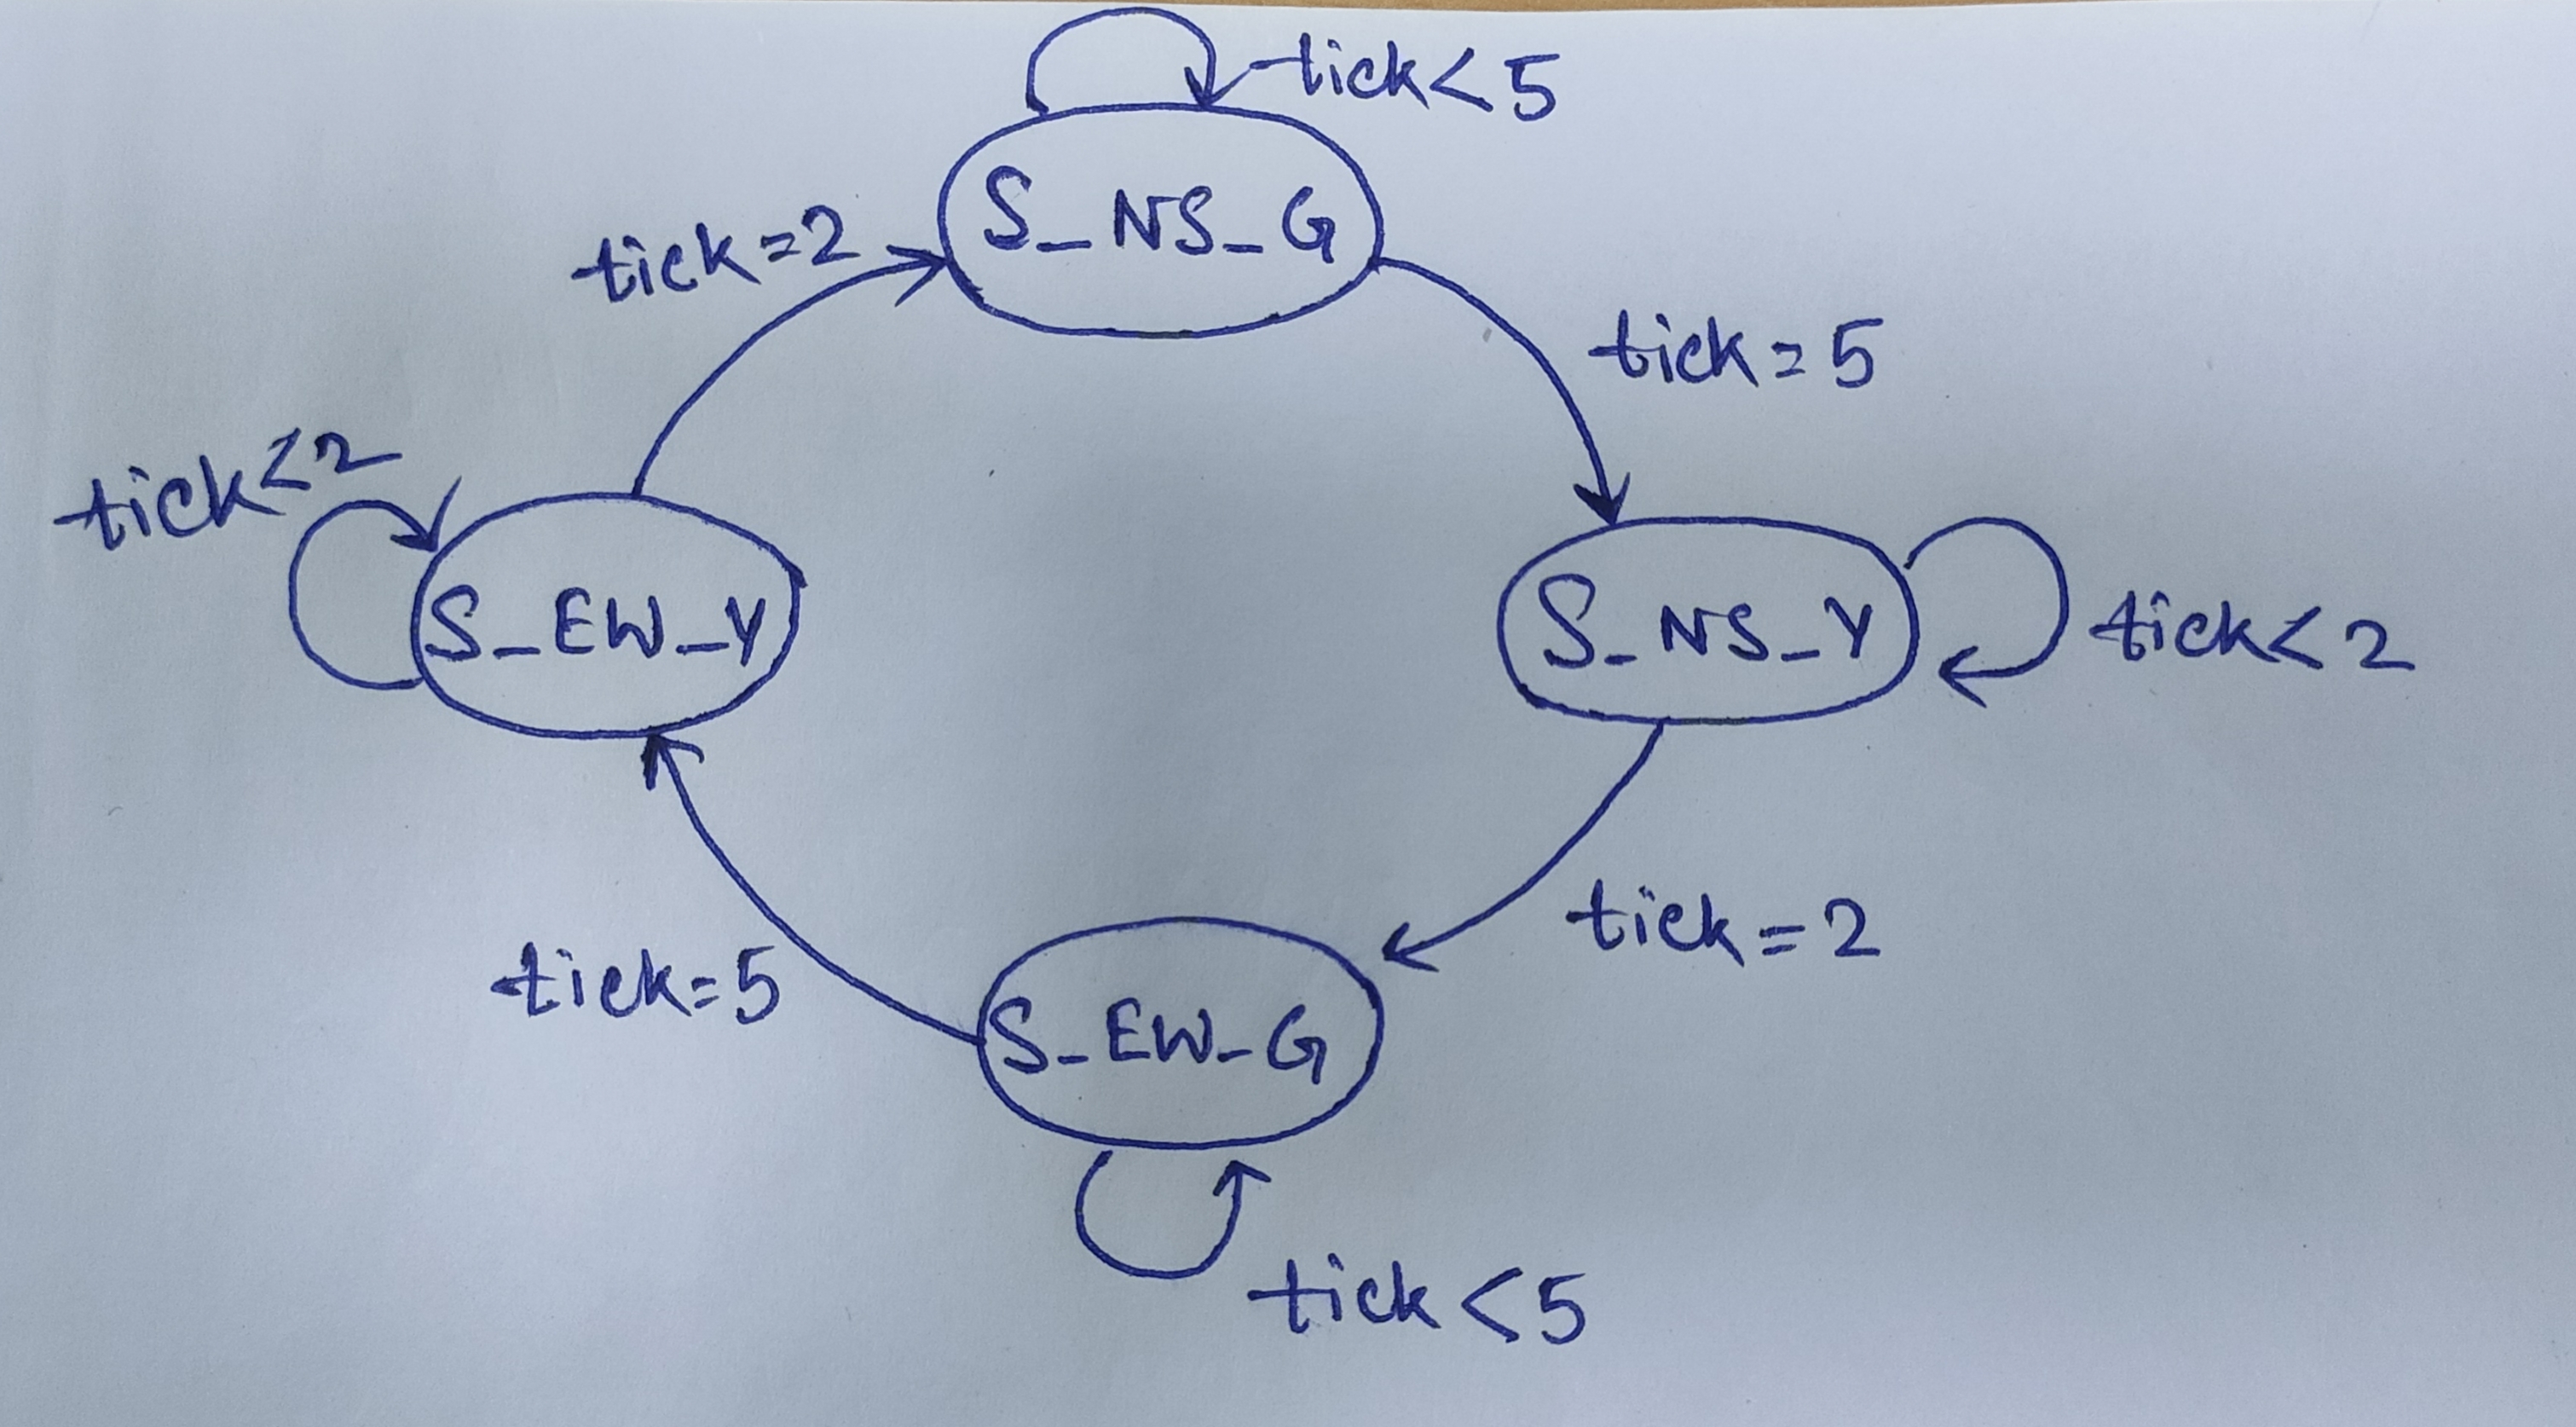 tick<5
S_NS_G
tick=2
tick=5
tick<2
S_EW_Y
S_NS_Y
tick<2
tick=2
tick=5
S_EW_G
tick<5